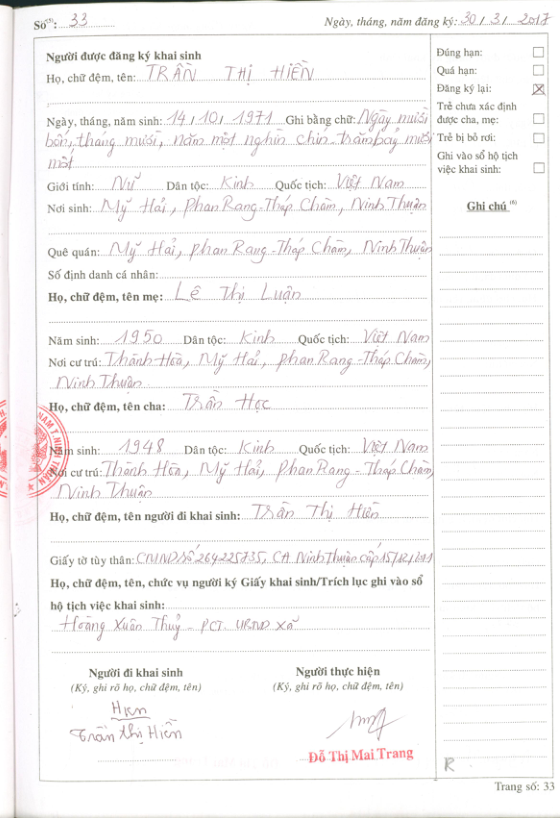 Số⁽⁵⁾: 33 Ngày, tháng, năm đăng ký: 30/3/2017
Người được đăng ký khai sinh
Họ, chữ đệm, tên: TRẦN THỊ HIỀN
Ngày, tháng, năm sinh: 14/10/1971 Ghi bằng chữ: Ngày mười
bốn, tháng mười, năm một nghìn chín trăm bảy mươi
mốt
Giới tính: Nữ Dân tộc: Kinh Quốc tịch: Việt Nam
Nơi sinh: Mỹ Hải, Phan Rang-Tháp Chàm, Ninh Thuận
Quê quán: Mỹ Hải, Phan Rang-Tháp Chàm, Ninh Thuận
Số định danh cá nhân:
Họ, chữ đệm, tên mẹ: Lê Thị Luận
Năm sinh: 1950 Dân tộc: Kinh Quốc tịch: Việt Nam
Nơi cư trú: Thành Hòa, Mỹ Hải, Phan Rang-Tháp Chàm,
Ninh Thuận
Họ, chữ đệm, tên cha: Trần Học
Năm sinh: 1948 Dân tộc: Kinh Quốc tịch: Việt Nam
Nơi cư trú: Thành Hòa, Mỹ Hải, Phan Rang-Tháp Chàm,
Ninh Thuận
Họ, chữ đệm, tên người đi khai sinh: Trần Thị Hiền
Giấy tờ tùy thân: CMND số 264225735, CA Ninh Thuận cấp
Họ, chữ đệm, tên, chức vụ người ký Giấy khai sinh/Trích lục ghi vào sổ
hộ tịch việc khai sinh:
Hoàng Xuân Thuỷ - PCT. UBND xã
Người đi khai sinh
(Ký, ghi rõ họ, chữ đệm, tên)
Hien
Trần Thị Hiền
Người thực hiện
(Ký, ghi rõ họ, chữ đệm, tên)
Đỗ Thị Mai Trang
Đúng hạn:
Quá hạn:
Đăng ký lại:
Trẻ chưa xác định
được cha, mẹ:
Trẻ bị bỏ rơi:
Ghi vào sổ hộ tịch
việc khai sinh:
Ghi chú ⁽⁶⁾
R
Trang số: 33